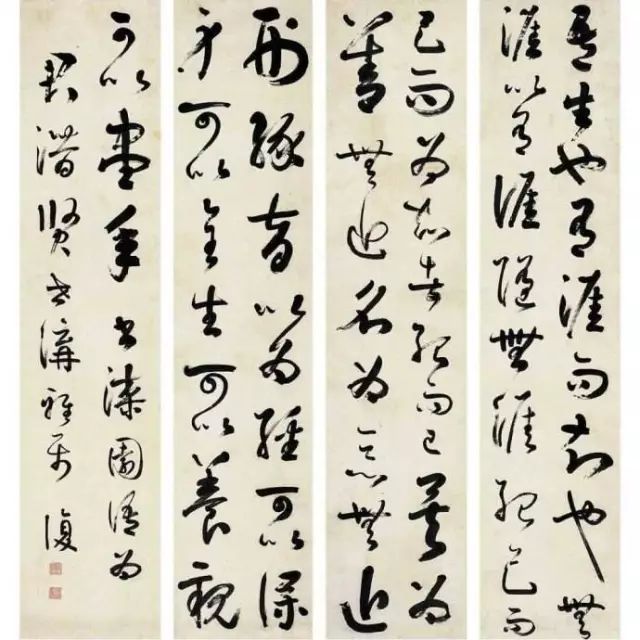 吾生也有涯而知也無
涯以有涯隨無涯殆已而
已而為知者殆而已矣為
善無近名為惡無近
刑緣督以為經可以保
身可以全生可以養親
可以盡年書漆園語為
潛賢世講雅屬 復